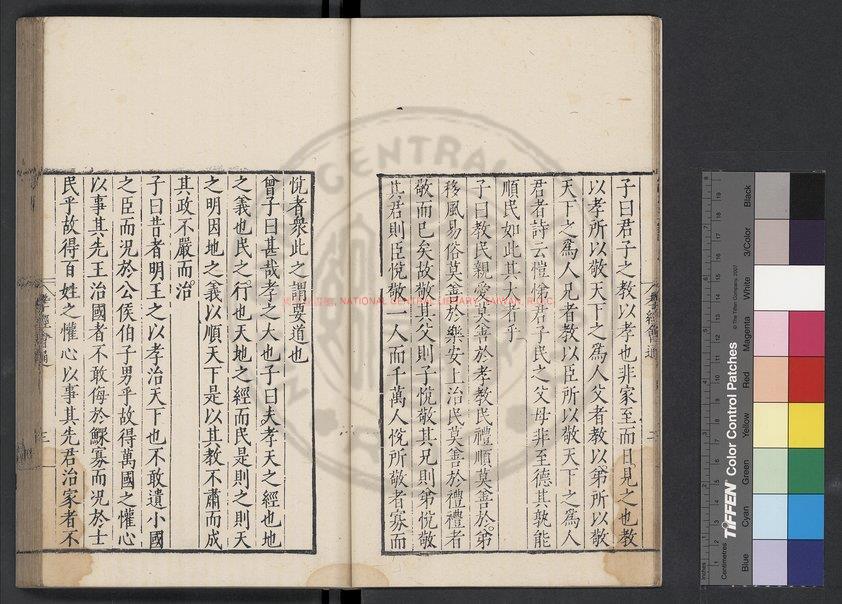 子曰君子之教以孝也非家至而日見之也教
以孝所以敬天下之爲人父者教以弟所以敬
天下之爲人兄者教以臣所以敬天下之爲人
君者詩云愷悌君子民之父母非至德其孰能
順民如此其大者乎
子曰教民親愛莫善於孝教民禮順莫善於弟
移風易俗莫善於樂安上治民莫善於禮禮者
敬而已矣故敬其父則子悅敬其兄則弟悅敬
其君則臣悅敬一人而千萬人悅所敬者寡而
悅者衆此之謂要道也
曾子曰甚哉孝之大也子曰夫孝天之經也地
之義也民之行也天地之經而民是則之則天
之明因地之義以順天下是以其教不肅而成
其政不嚴而治
子曰昔者明王之以孝治天下也不敢遺小國
之臣而況於公侯伯子男乎故得萬國之懽心
以事其先王治國者不敢侮於鰥寡而況於士
民乎故得百姓之懽心以事其先君治家者不
孝經會通
三
NATIONAL CENTRAL LIBRARY, TAIWAN, R.O.C.
TIFFEN Color Control Patches
© The Tiffen Company, 2007
Blue
Cyan
Green
Yellow
Red
Magenta
White
3/Color
Black
Inches
Centimetres